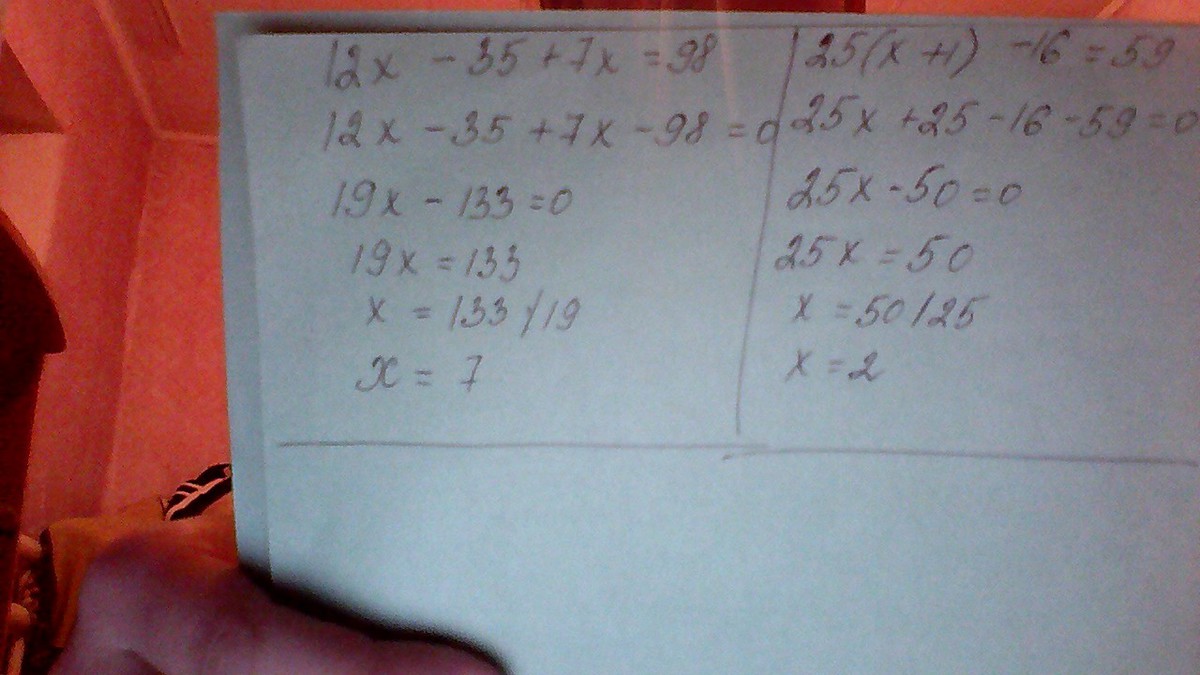 12x - 35 + 7x = 98
12x - 35 + 7x - 98 = 0
19x - 133 = 0
19x = 133
x = 133 / 19
x = 7
25(x + 1) - 16 = 59
25x + 25 - 16 - 59 = 0
25x - 50 = 0
25x = 50
x = 50 / 25
x = 2